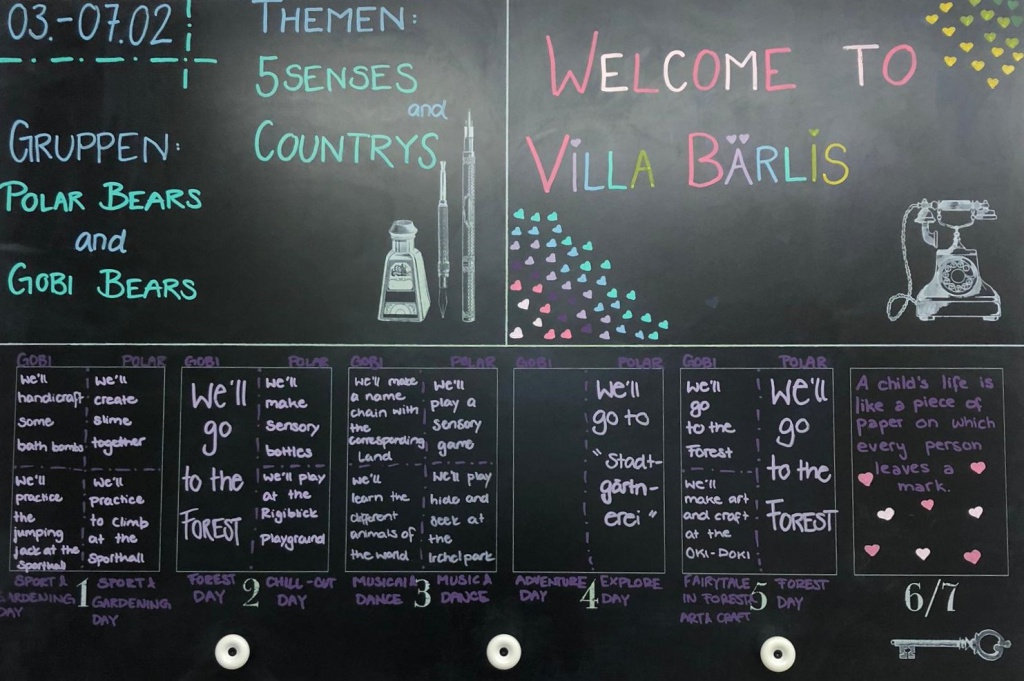 03.-07.02
THEMEN:
5SENSES
and
COUNTRYS
GRUPPEN:
POLAR BEARS
and
GOBI BEARS
WELCOME TO
VILLA BÄRLIS
GOBI
we'll
handicraft
some
bath bombs
we'll
practice
the
jumping
jack at the
sporthall
POLAR
we'll
create
slime
together
we'll
practice
to climb
at the
sporthall
SPORT &
GARDENING
DAY
1
SPORT &
GARDENING
DAY
GOBI
we'll
go
to the
FOREST
POLAR
we'll
make
sensory
bottles
we'll play
at the
Rigiblick
playground
FOREST
DAY
2
CHILL-OUT
DAY
GOBI
we'll make
a name
chain with
the
corresponding
Land
we'll
learn the
different
animals of
the world
POLAR
we'll
play a
sensory
game
we'll play
hide and
seek at
the
Irchelpark
MUSIC &
DANCE
3
MUSIC &
DANCE
GOBI
POLAR
we'll
go to
"Stadt-
gärtn-
erei"
ADVENTURE
DAY
4
EXPLORE
DAY
GOBI
we'll
go
to the
Forest
we'll
make art
and craft
at the
OKI-DOKI
POLAR
we'll
go
to the
FOREST
FAIRYTALE
IN FOREST
ART & CRAFT
5
FOREST
DAY
A child's life is
like a piece of
paper on which
every person
leaves a
mark.
6/7